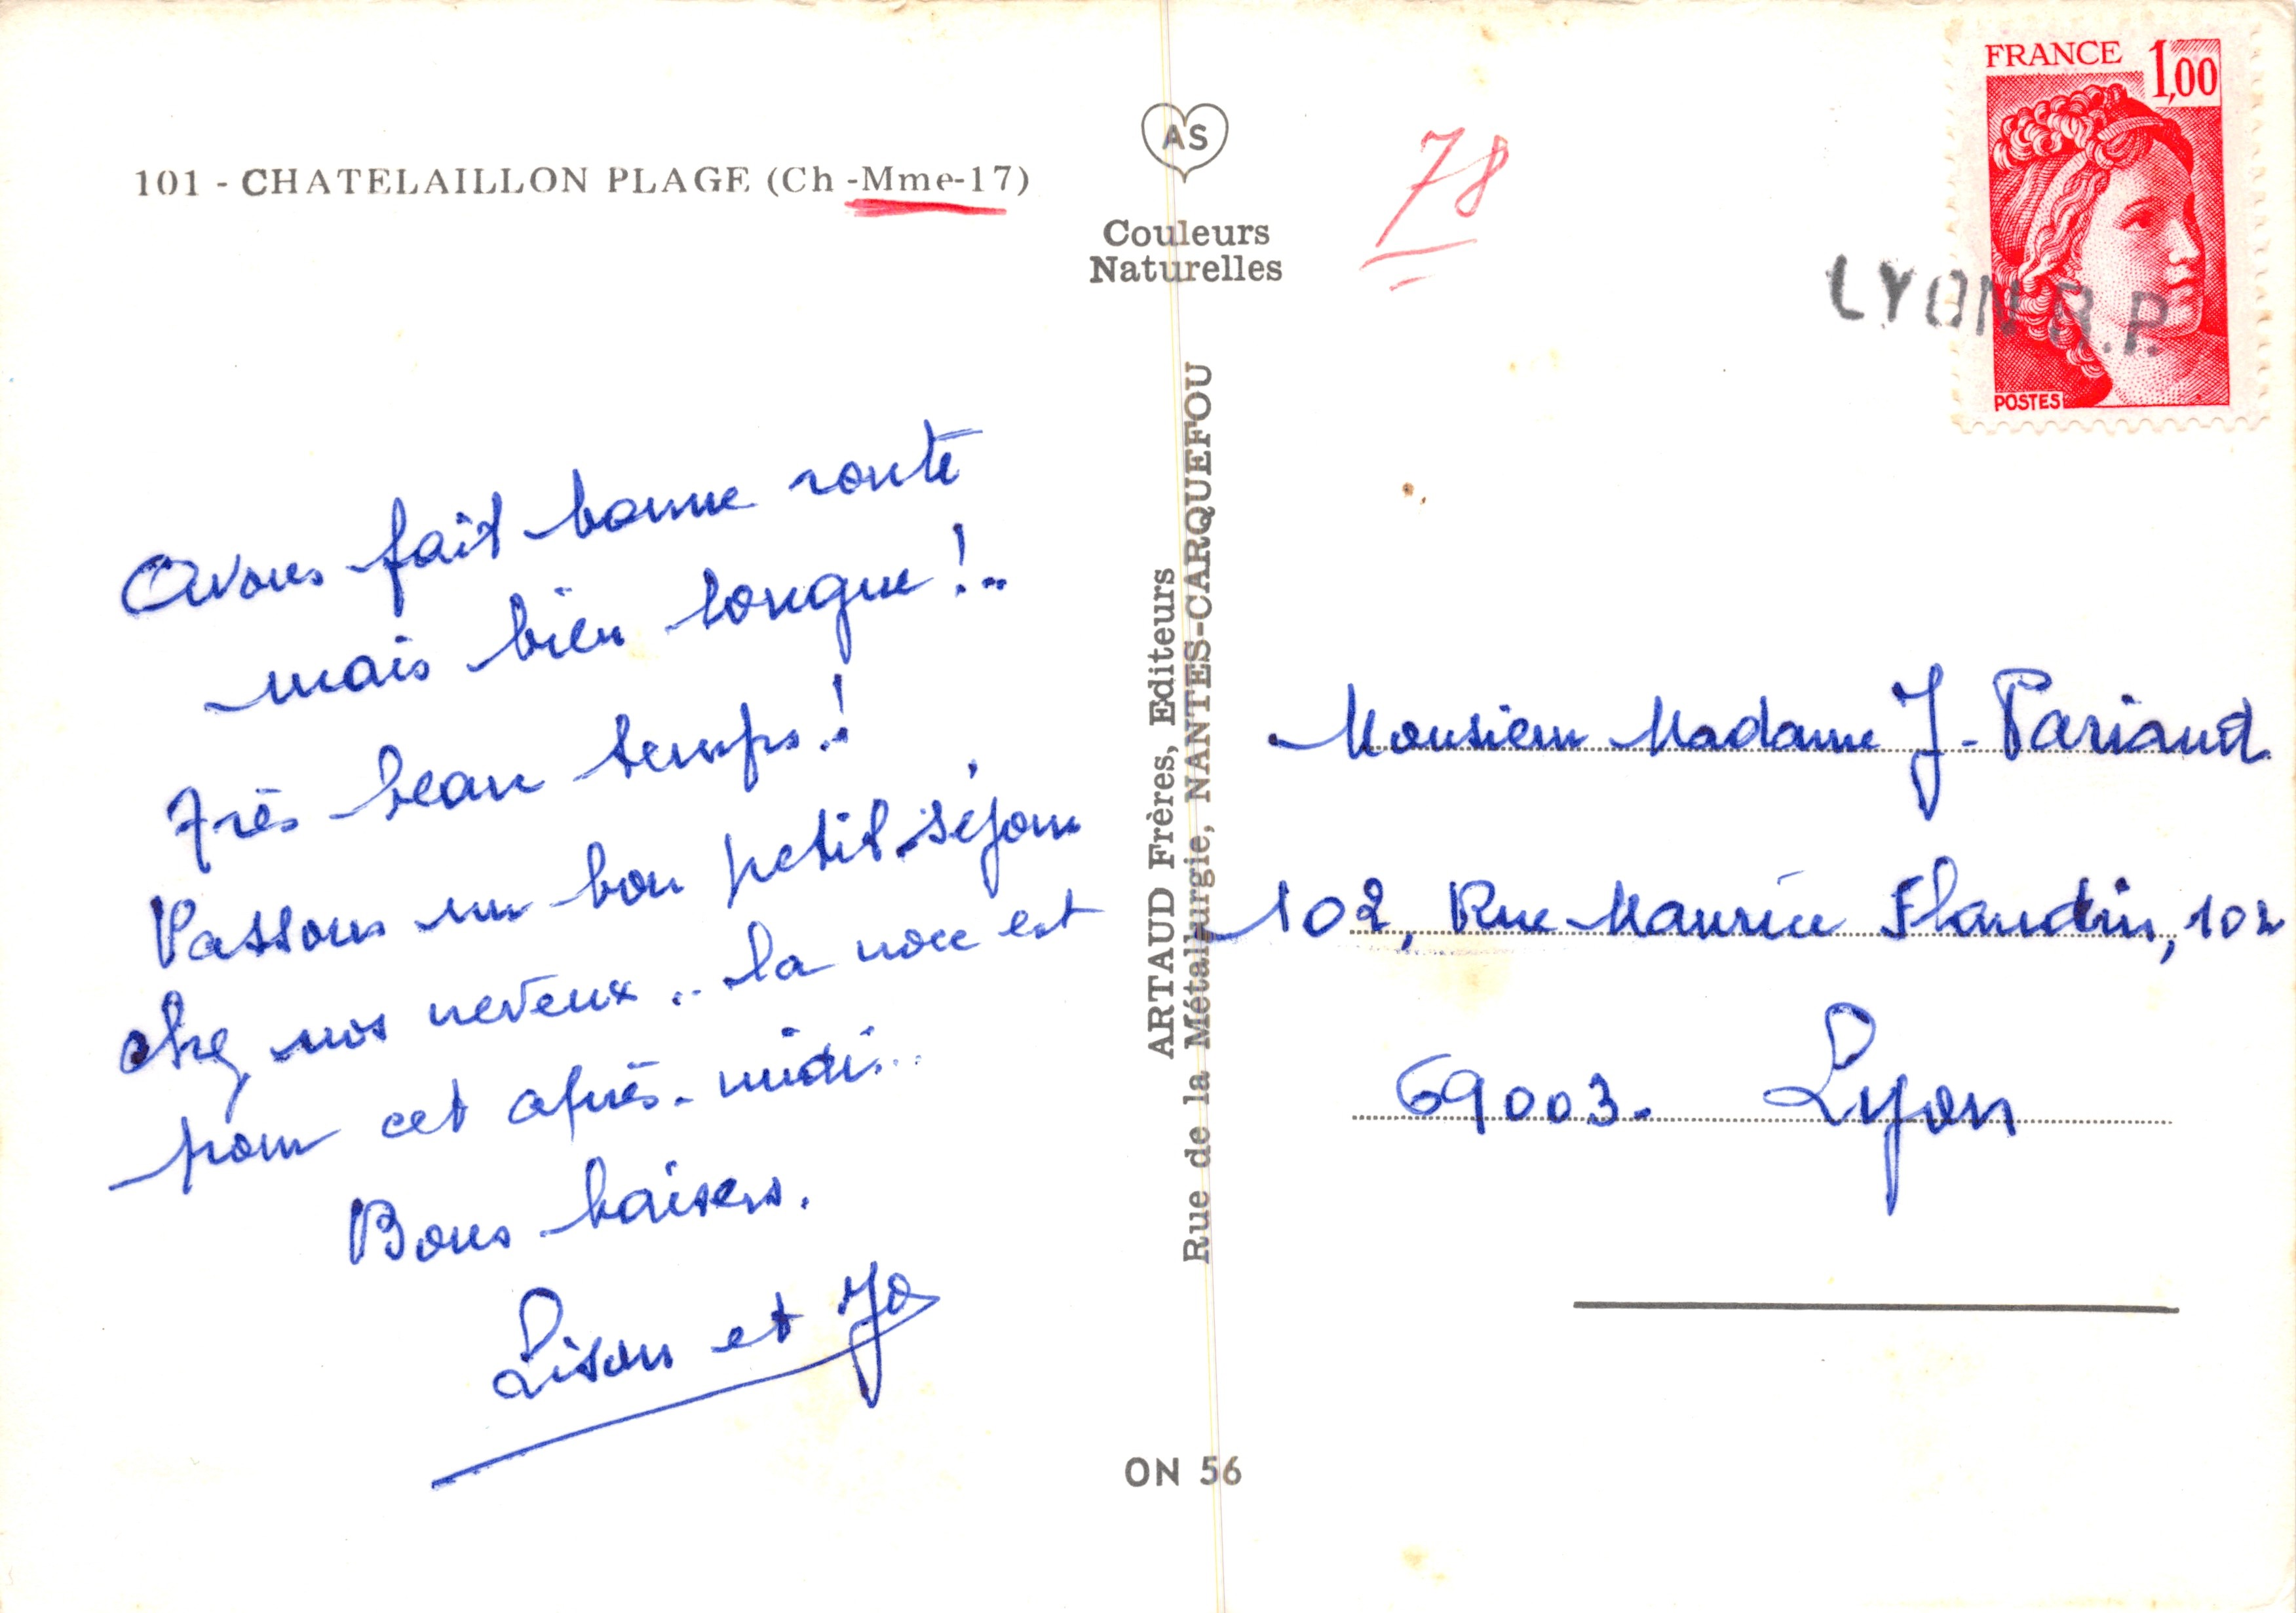 101 - CHATELAILLON PLAGE (Ch -Mme-17)
Avons fait bonne route
mais bien longue !..
Très beau temps !
Passons un bon petit séjour
chez nos neveux .. la noce est
pour cet après-midi...
Bons baisers.
Lison et Jo
AS
Couleurs
Naturelles
ARTAUD Frères, Editeurs
Rue de la Métallurgie, NANTES-CARQUEFOU
ON 56
78
FRANCE 1,00
POSTES
LYON R.P.
Monsieur Madame J. Pariaud
102, Rue Maurice Flandin, 102
69003. Lyon